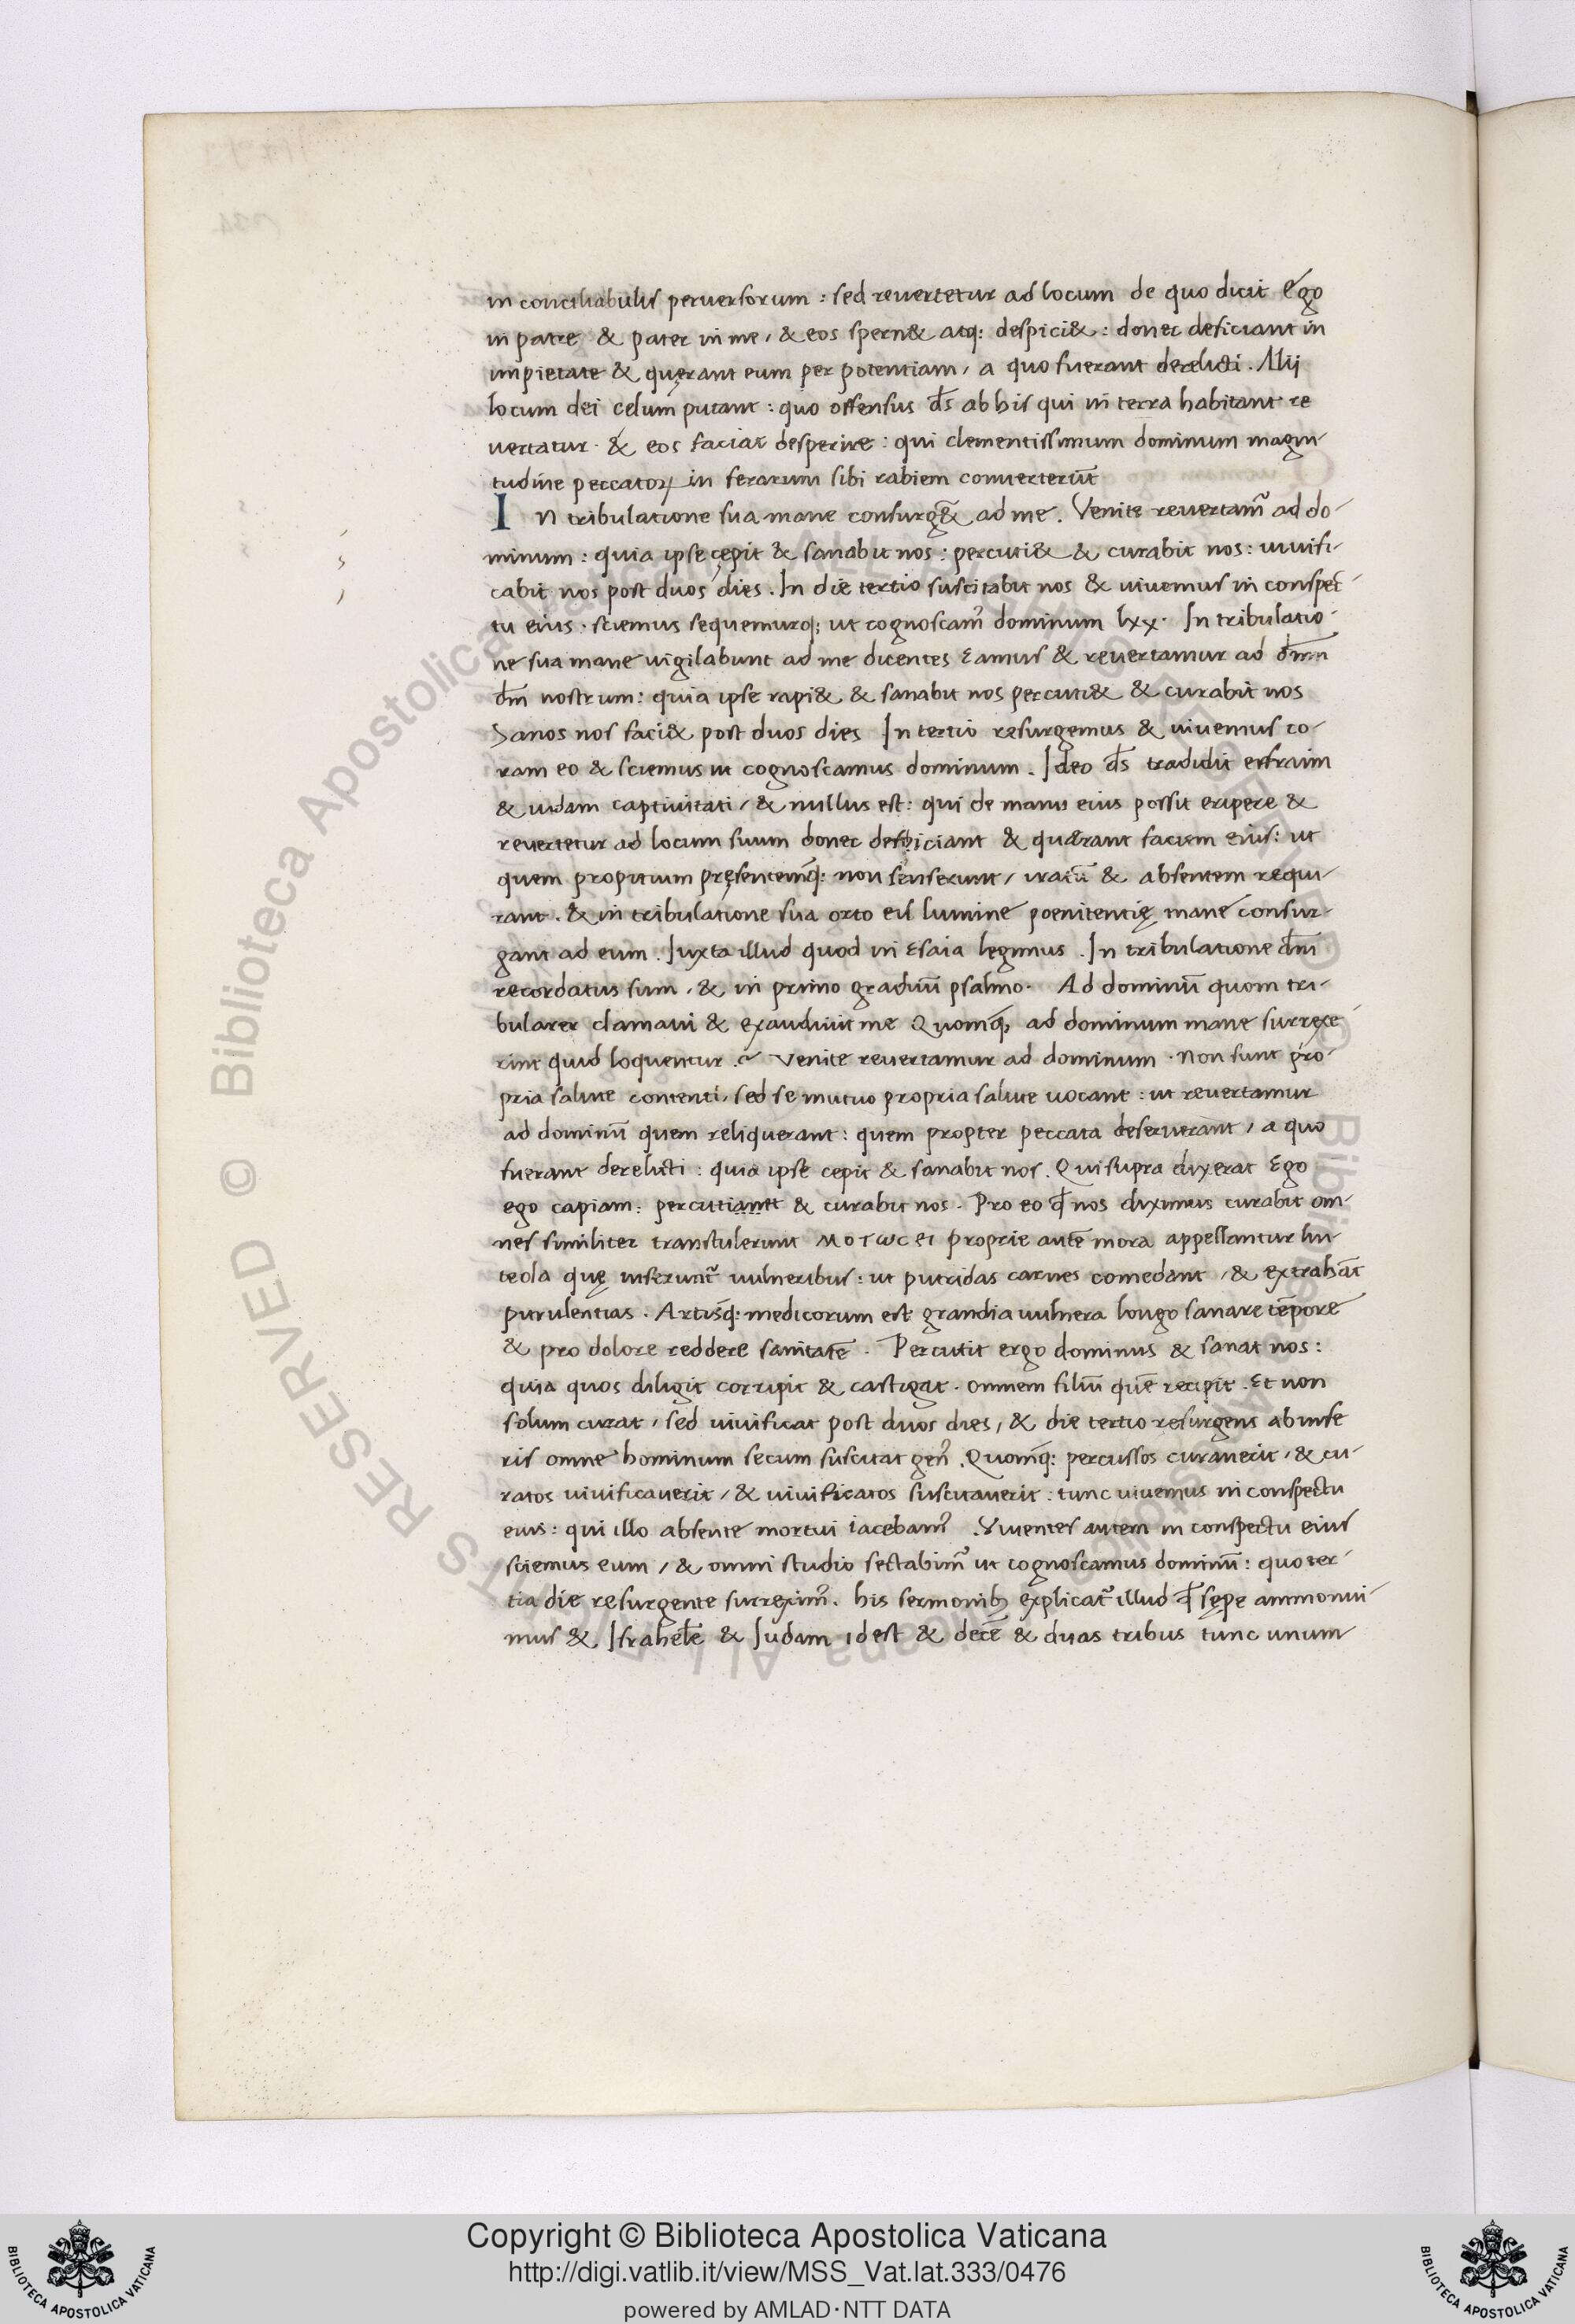 in conciliabulis peruersorum : sed reuertetur ad locum de quo dicit Ego
in patre & pater in me, & eos spern& atq: despici& : donec deficiant in
impietate & quęrant eum per potentiam, a quo fuerant derelicti. Alij
locum dei cęlum putant : quo offensus d̅s ab his qui in terra habitant re
uertatur · & eos faciat desperire : qui clementissimum dominum magni-
tudine peccatoꝝ in ferarum sibi rabiem conuerterūt
IN tribulatione sua mane consurg& ad me. Venite reuertam᷒ ad do-
minum : quia ipse cępit & sanabit nos : percuti& & curabit nos : uiuifi-
cabit nos post duos dies. In die tertio suscitabit nos & uiuemus in conspec-
tu eius · sciemus sequemurq; ut cognoscam᷒ dominum lxx · In tribulatio-
ne sua mane uigilabunt ad me dicentes Eamus & reuertamur ad d̅mn
d̅m nostrum : quia ipse rapi& & sanabit nos percuti& & curabit nos
Sanos nos faci& post duos dies In tertio resurgemus & uiuemus co-
ram eo & sciemus ut cognoscamus dominum. Ideo d̅s tradidit effraim
& iudam captiuitati, & nullus est : qui de manu eius possit eripere &
reuertetur ad locum suum donec despiciant & quærant faciem eius : ut
quem propitium pręsentemq̄: non senserunt, iratū & absentem requi-
rant. & in tribulatione sua orto eis lumine poenitentię mane consur-
gant ad eum. Iuxta illud quod in Esaia legimus. In tribulatione d̅m
recordatus sum, & in primo graduū psalmo · Ad dominū quom tri-
bularer clamaui & exaudiuit me Quomq̄; ad dominum mane surrexe-
rint quid loquentur .~ Venite reuertamur ad dominum · Non sunt pro-
pria salute contenti, sed se mutuo propria salute uocant : ut reuertamur
ad dominū quem reliquerant : quem propter peccata deseruerant, a quo
fuerant derelicti : quia ipse cepit & sanabit nos. Qui supra dixerat Ego
ego capiam : percutiamet & curabit nos. Pro eo qđ nos diximus curabit om-
nes similiter transtulerunt ΜΟΤωCΕΙ proprie autē mora appellantur lin-
teola quę inserunt᷒ uulneribus : ut putridas carnes comedant, & extrahāt
purulentias. Artisq̄: medicorum est grandia uulnera longo sanare tēpore
& pro dolore reddere sanitatē. Percutit ergo dominus & sanat nos :
quia quos diligit corripit & castigat. omnem filiū quē recipit. Et non
solum curat, sed uiuificat post duos dies, & die tertio resurgens ab infe
ris omne hominum secum suscitat gen᷒. Quomq̄: percussos curauerit, & cu-
ratos uiuificauerit, & uiuificatos suscitauerit : tunc uiuemus in conspectu
eius : qui illo absente mortui iacebam᷒. Viuentes autem in conspectu eius
sciemus eum, & omni studio sectabim᷒ ut cognoscamus dominū : quo ter-
tia die resurgente surrexim᷒. his sermonibꝫ explicat᷒ illud qđ sępe ammonui-
mus & Israhelē & Iudam idest & decē & duas tribus tunc unum
© Biblioteca Apostolica Vaticana ALL RIGHTS RESERVED
Copyright © Biblioteca Apostolica Vaticana
http://digi.vatlib.it/view/MSS_Vat.lat.333/0476
powered by AMLAD·NTT DATA
BIBLIOTECA APOSTOLICA VATICANA
BIBLIOTECA APOSTOLICA VATICANA